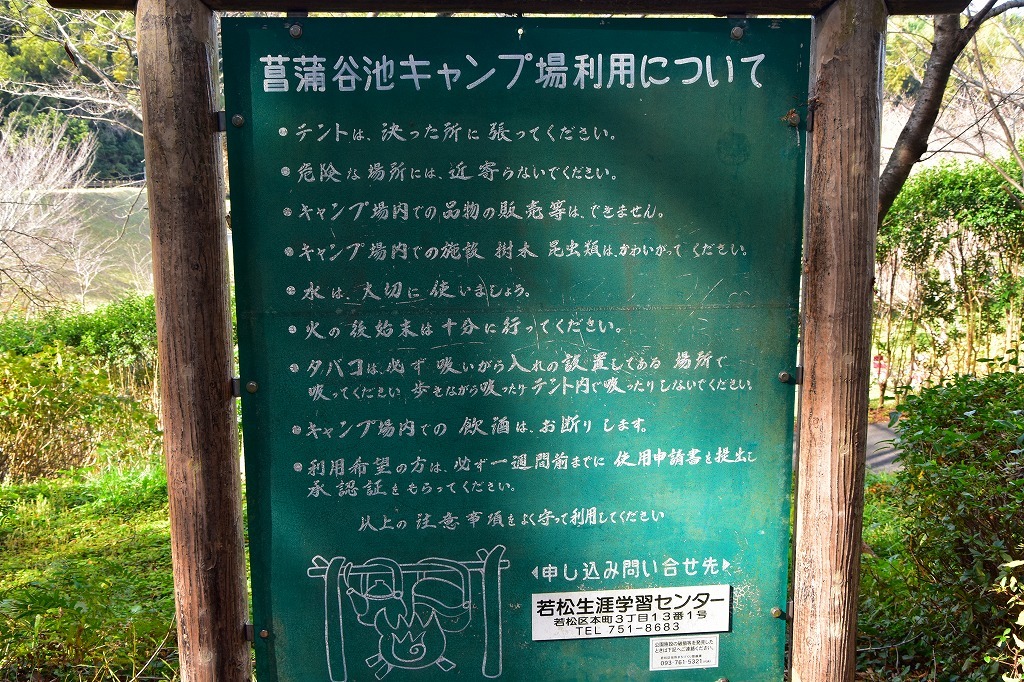 菖蒲谷池キャンプ場利用について
テントは、決った所に張ってください。
危険な場所には、近寄らないでください。
キャンプ場内での品物の販売等は、できません。
キャンプ場内での施設 樹木 昆虫類は、かわいがってください。
水は、大切に使いましょう。
火の後始末は十分に行ってください。
タバコは、必ず吸いがら入れの設置してある場所で
吸ってください 歩きながら吸ったりテント内で吸ったりしないでください。
キャンプ場内での飲酒は、お断りします。
利用希望の方は、必ず一週間前までに使用申請書を提出し
承認証をもらってください。
以上の注意事項をよく守って利用してください
申し込み問い合せ先
若松生涯学習センター
若松区本町3丁目13番1号
TEL 751-8683
公園施設の破損等を発見した
ときは下記へご連絡ください。
093-761-5321